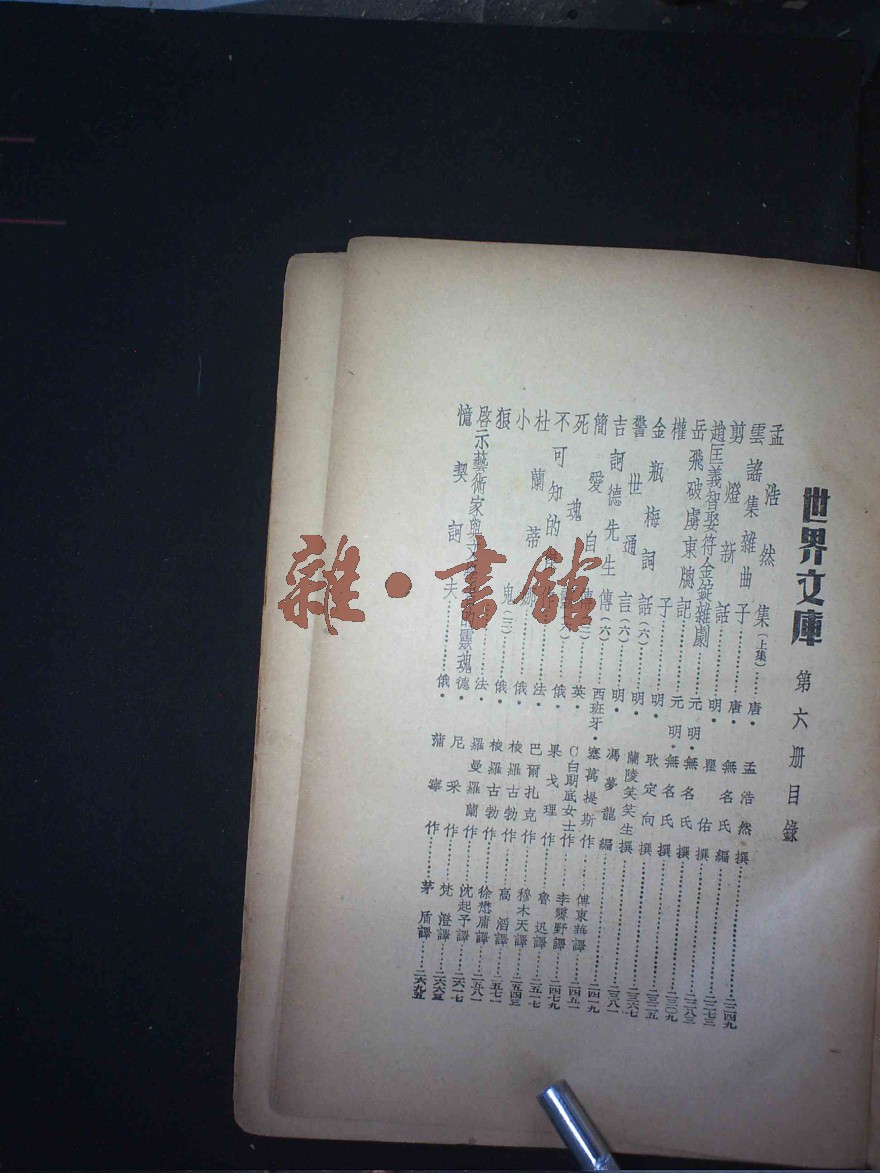 世界文庫 第六册目錄
孟浩然集(上集)……唐·孟浩然撰……二二四九
雲謠集雜曲子……唐·無名氏編……二二七三
剪燈新話……明·瞿佑撰……二二八三
趙匡義智娶符金錠雜劇……元明·無名氏撰……二三〇九
岳飛破虜東牕記……元明·無名氏撰……二三二五
權子……明·耿定向撰……二三六七
金瓶梅詞話(六)……明·蘭陵笑笑生撰……二三八一
警世通言(六)……明·馮夢龍編……二四一九
吉訶德先生傳(六)……西班牙·塞萬提斯作……傅東華譯……二四五一
簡愛自傳(三)……英·C白朗底女士作……李霽野譯……二四七九
死魂靈(六)……俄·果戈理作……魯迅譯……二五一七
不可知的傑作……法·巴爾扎克作……穆木天譯……二五四三
杜蘭蒂娜……俄·梭羅古勃作……高滔譯……二五七一
小鬼(三)……俄·梭羅古勃作……徐懋庸譯……二五八一
狼……法·羅曼羅蘭作……沈起予譯……二六一七
啓示藝術家與文學者的靈魂……德·尼采作……梵澄譯……二六六五
憶契訶夫……俄·蒲寧作……茅盾譯……二六九五
雜·書館